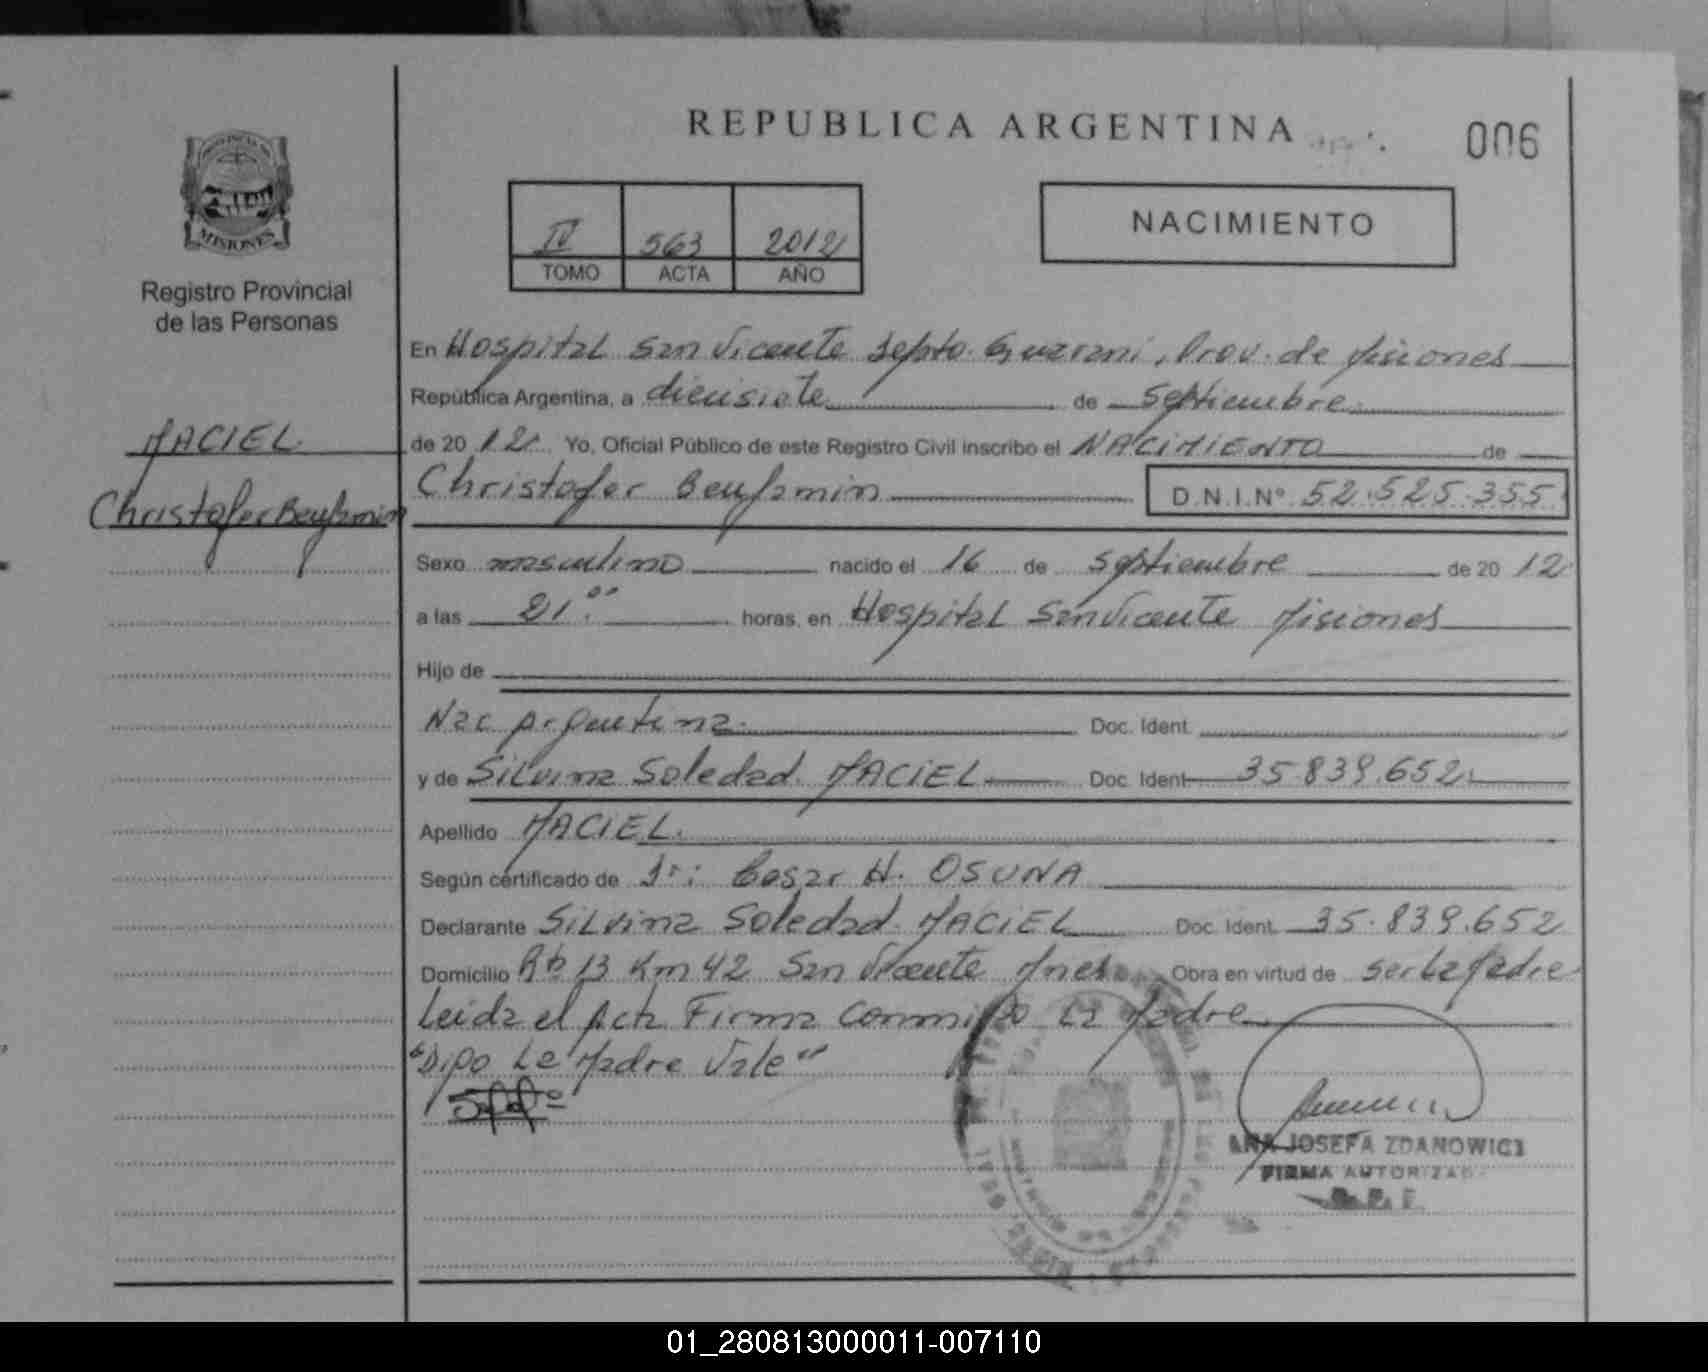 REPUBLICA ARGENTINA
006
PROVINCIA DE
MISIONES
Registro Provincial
de las Personas
IV 563 2012
TOMO ACTA AÑO
NACIMIENTO
MACIEL
Christofer Benjamin
En Hospital San Vicente Depto. Guarani, Prov. de Misiones
República Argentina, a diecisiete de Septiembre
de 2012 Yo, Oficial Público de este Registro Civil inscribo el NACIMIENTO de
Christofer Benjamin D.N.I.Nº 52.525.355
Sexo masculino nacido el 16 de Septiembre de 2012
a las 21:00 horas, en Hospital San Vicente Misiones
Hijo de
Nac Argentina Doc. Ident.
y de Silvina Soledad MACIEL Doc. Ident. 35.839.652
Apellido MACIEL
Según certificado de Dr: Cesar H. OSUNA
Declarante Silvina Soledad MACIEL Doc. Ident. 35.839.652
Domicilio Rta 13 Km 42 San Vicente Mnes. Obra en virtud de ser la Madre
Leida el Acta Firma Conmigo La Madre
"Digo La Madre Vale"
ANA JOSEFA ZDANOWICZ
FIRMA AUTORIZADA
01_280813000011-007110